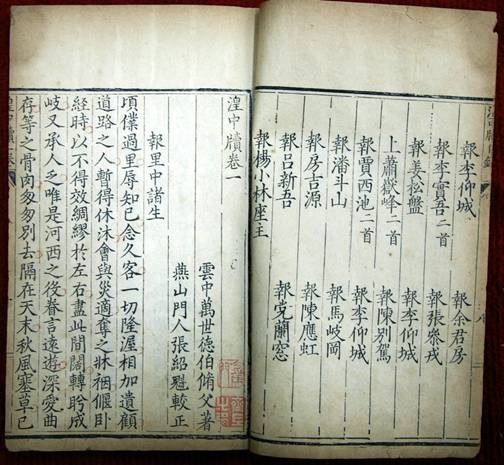 報李仰城　報余君房
報李實吾二首　報張參戎
報姜松盤　報李仰城
上蕭嶽峰二首　報陳別駕
報賈西池二首　報李仰城
報潘斗山　報馬岐岡
報房吉源　報陳應虹
報呂新吾　報党蘭窓
報楊小林座主
湟中牘卷一
雲中萬世德伯脩父著
燕山門人張紹魁較正
報里中諸生
頃僕過里辱知已念久客一切隆渥相加遺顧
道路之人暫得休沐會與災適奪之牀稛偃卧
經時以不得效綢繆於左右盡此間闊轉盻成
岐又承人乏唯是河西之役眷言遠遊深愛曲
存等之骨肉匆匆別去隔在天末秋風塞草已